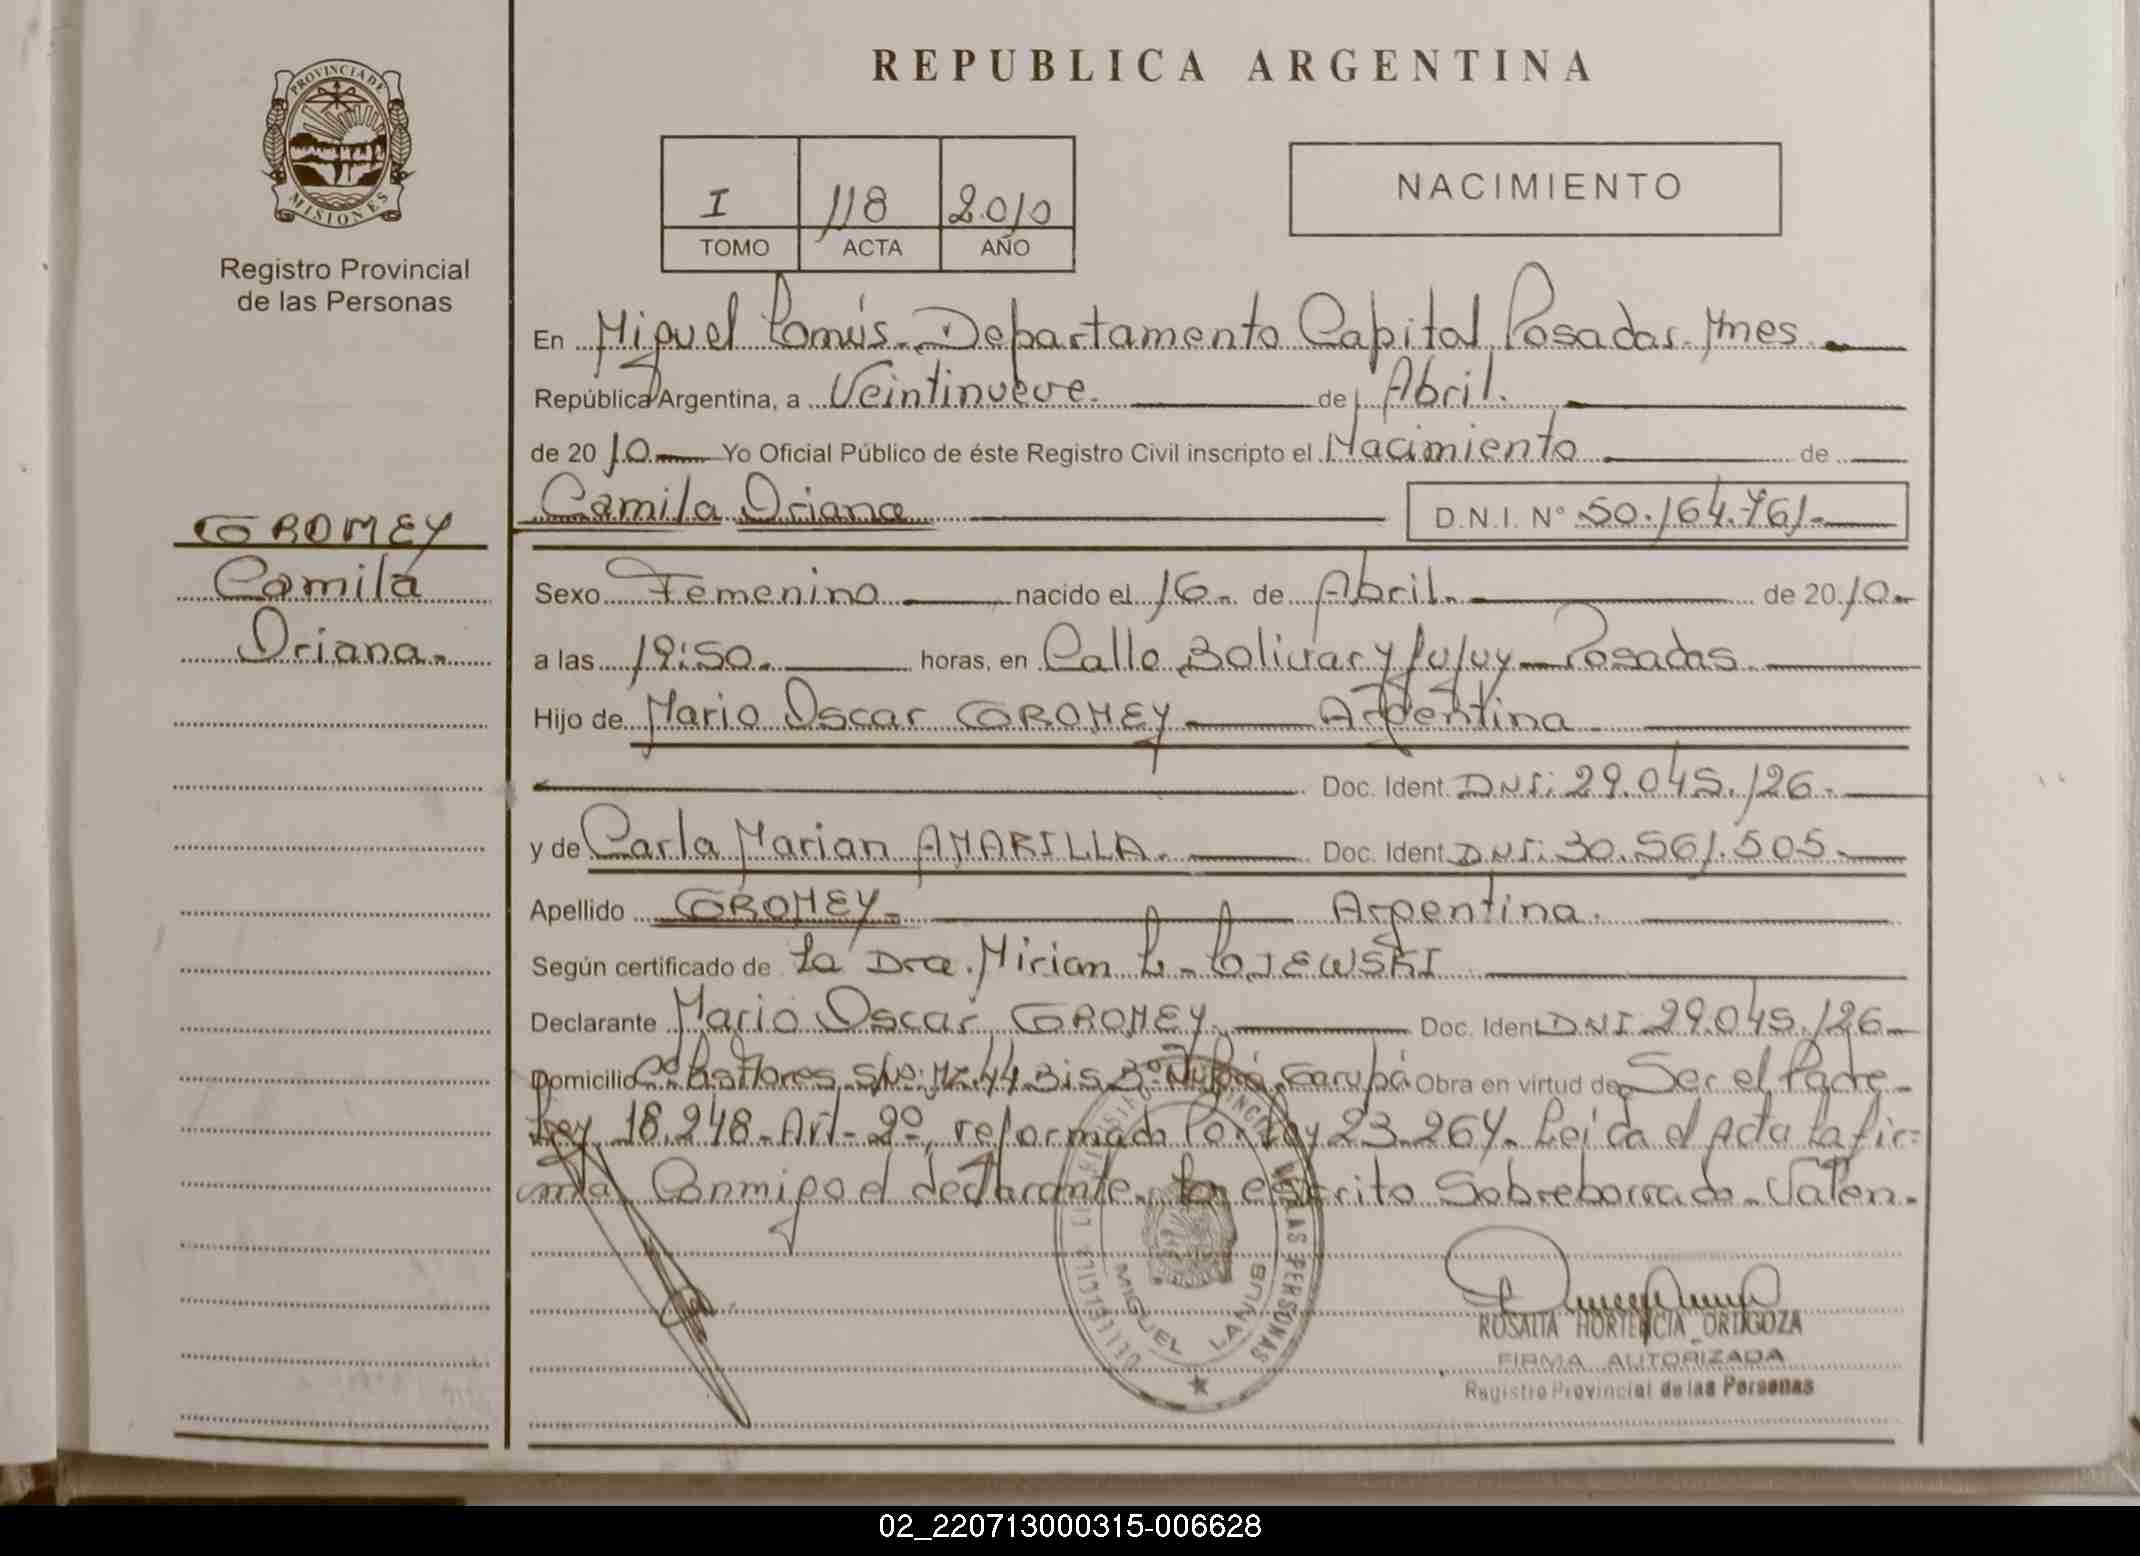 PROVINCIA DE
MISIONES
Registro Provincial
de las Personas
GROMEY
Camila
Oriana.
REPUBLICA ARGENTINA
I 118 2010
TOMO ACTA AÑO
NACIMIENTO
En Miguel Lanús. Departamento Capital Posadas. Mnes
República Argentina, a Veintinueve. de Abril.
de 2010 Yo Oficial Público de éste Registro Civil inscripto el Nacimiento de
Camila Oriana D.N.I. N° 50.164.761.
Sexo Femenino nacido el 16 de Abril. de 2010
a las 12:50 horas, en Calle Bolivar y Jujuy Posadas
Hijo de Mario Oscar GROMEY Argentina
Doc. Ident. DNI: 29.045.126
y de Carla Marian AMARILLA. Doc. Ident. DNI: 30.561.505
Apellido GROMEY Argentina.
Según certificado de La Dra. Mirian L.
Declarante Mario Oscar GROMEY Doc. Ident. DNI 29.045.126
Domicilio Las Flores S/Nº: Mz. 44 Bis Bº Garupá Obra en virtud de Ser el Padre
Ley 18.248 - Art - 2º, reformado Por Ley 23.264. Leída el Acta la fir=
ma Conmigo el declarante. Lo escrito Sobreborrado - Valen.
MIGUEL LANUS
ROSALIA HORTENCIA ORTIGOZA
FIRMA AUTORIZADA
Registro Provincial de las Personas
02_220713000315-006628